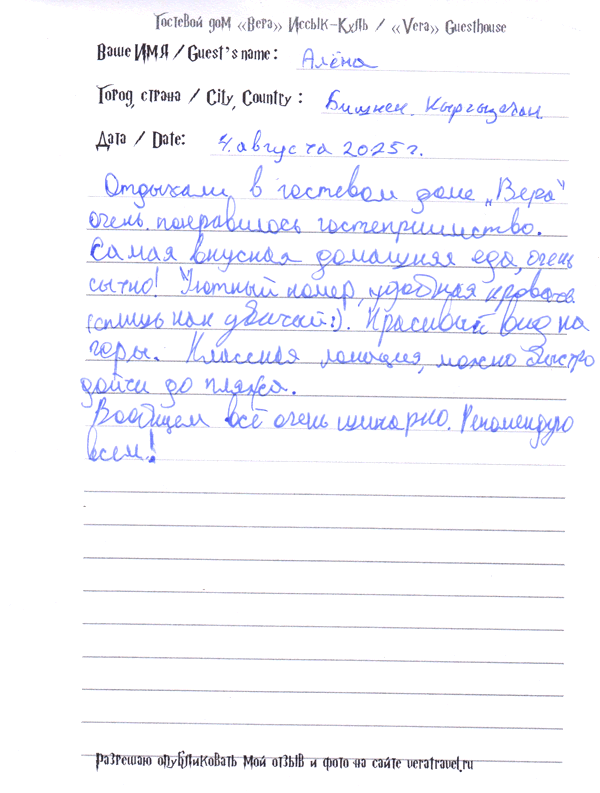 Гостевой дом «Вера» Иссык-Куль / «Vera» Guesthouse
Ваше ИМЯ / Guest's name: Алёна
Город, страна / City, Country: Бишкек. Кыргызстан.
Дата / Date: 4. августа 2025 г.
Отдыхали в гостевом доме „Вера"
очень понравилось гостеприимство.
Самая вкусная домашняя еда, очень
сытно! Уютный номер, удобная кровать
(спишь как убитый:). Красивый вид на
горы. Классная локация, можно быстро
дойти до пляжа.
Вообщем всё очень шикарно. Рекомендую
всем!
Разрешаю опубликовать мой отзыв и фото на сайте veratravel.ru